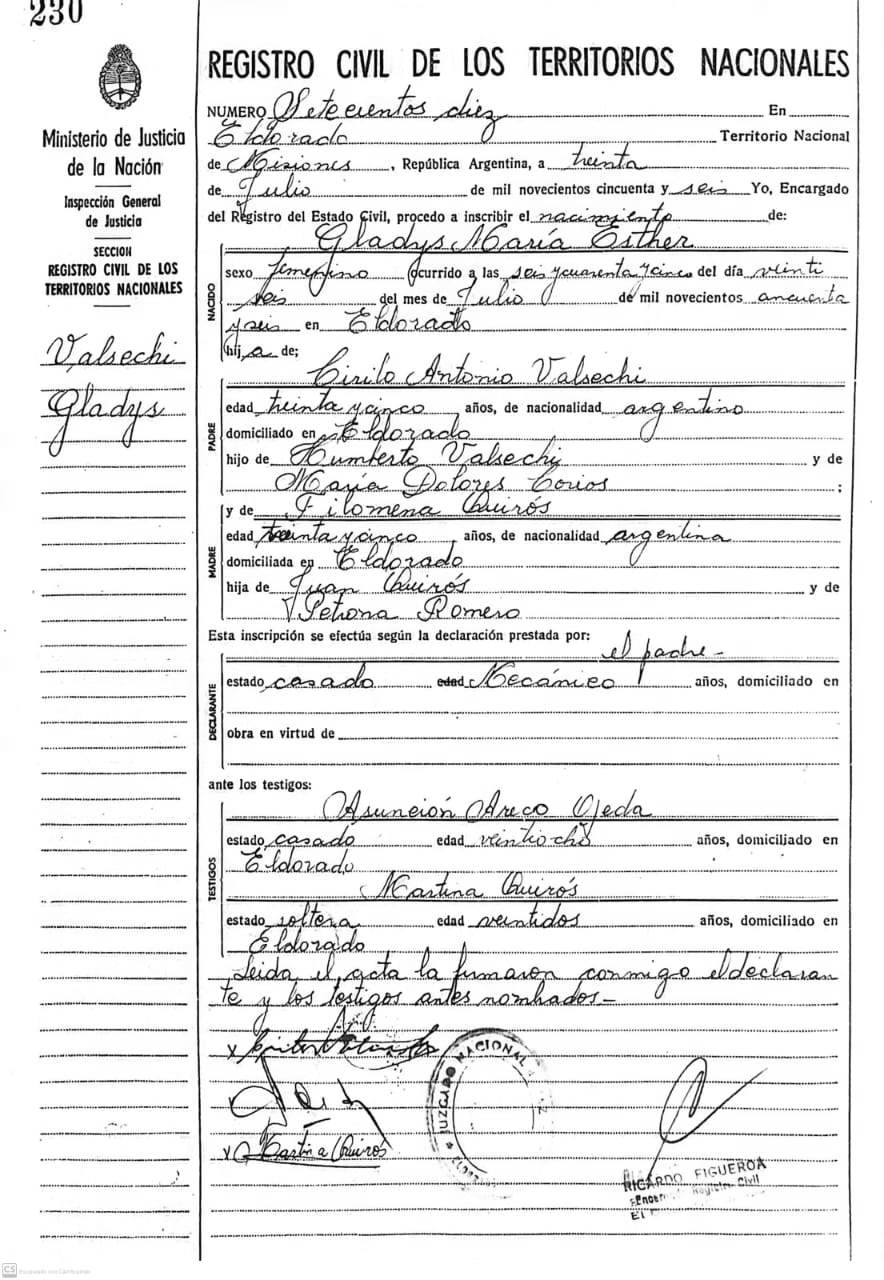 230
Ministerio de Justicia
de la Nación
Inspección General
de Justicia
SECCION
REGISTRO CIVIL DE LOS
TERRITORIOS NACIONALES
Valsechi
Gladys
REGISTRO CIVIL DE LOS TERRITORIOS NACIONALES
NUMERO Setecientos diez En
Eldorado Territorio Nacional
de Misiones, República Argentina, a treinta
de Julio de mil novecientos cincuenta y seis Yo, Encargado
del Registro del Estado Civil, procedo a inscribir el nacimiento de:
Gladys María Esther
NACIDO
sexo femenino Ocurrido a las seis y cuarenta y cinco del día veinti
seis del mes de Julio de mil novecientos cincuenta
y seis en Eldorado
hij a de;
Cirilo Antonio Valsechi
PADRE
edad treinta y cinco años, de nacionalidad argentino
domiciliado en Eldorado
hijo de Humberto Valsechi y de
María Dolores ;
y de Filomena Quirós
MADRE
edad treinta y cinco años, de nacionalidad argentina
domiciliada en Eldorado
hija de Juan Quirós y de
Petrona Romero
Esta inscripción se efectúa según la declaración prestada por:
el padre-
DECLARANTE
estado casado edad Mecánico años, domiciliado en
obra en virtud de
ante los testigos:
Asunción Areco Ojeda
TESTIGOS
estado casado edad veintiocho años, domiciliado en
Eldorado
Martina Quirós
estado soltera edad veintidos años, domiciliado en
Eldorado
Leida el acta la firmaron conmigo el declaran
te y los testigos antes nombrados-
x
JUZGADO NACIONAL
x Martina Quirós
RICARDO FIGUEROA
Registro Civil
CS Escaneado con CamScanner